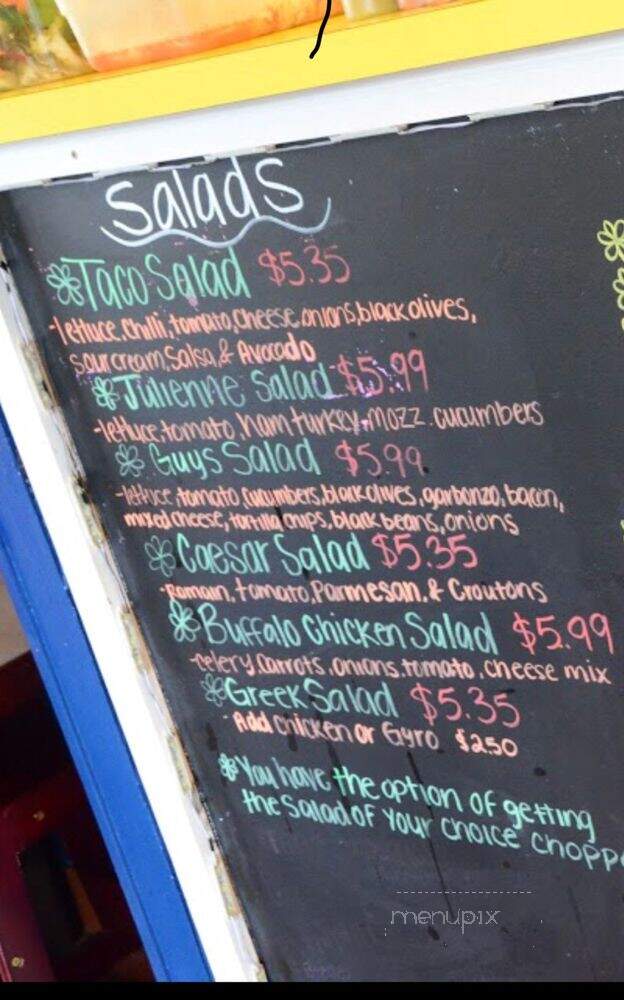 Salads
Taco Salad $5.35
-lettuce, chilli, tomato, cheese, onions, black olives,
sour cream, Salsa, & Avocado
Julienne Salad $5.99
-lettuce, tomato, ham turkey, mozz. cucumbers
Guys Salad $5.99
-lettuce, tomato, cucumbers, black olives, garbonzo, bacon,
mixed cheese, tortilla chips, black beans, onions
Caesar Salad $5.35
-Romain, tomato, Parmesan, & Croutons
Buffalo Chicken Salad $5.99
-celery, carrots, onions, tomato, cheese mix
Greek Salad $5.35
- Add chicken or Gyro $2.50
You have the option of getting
the salad of your choice chopp
menupix